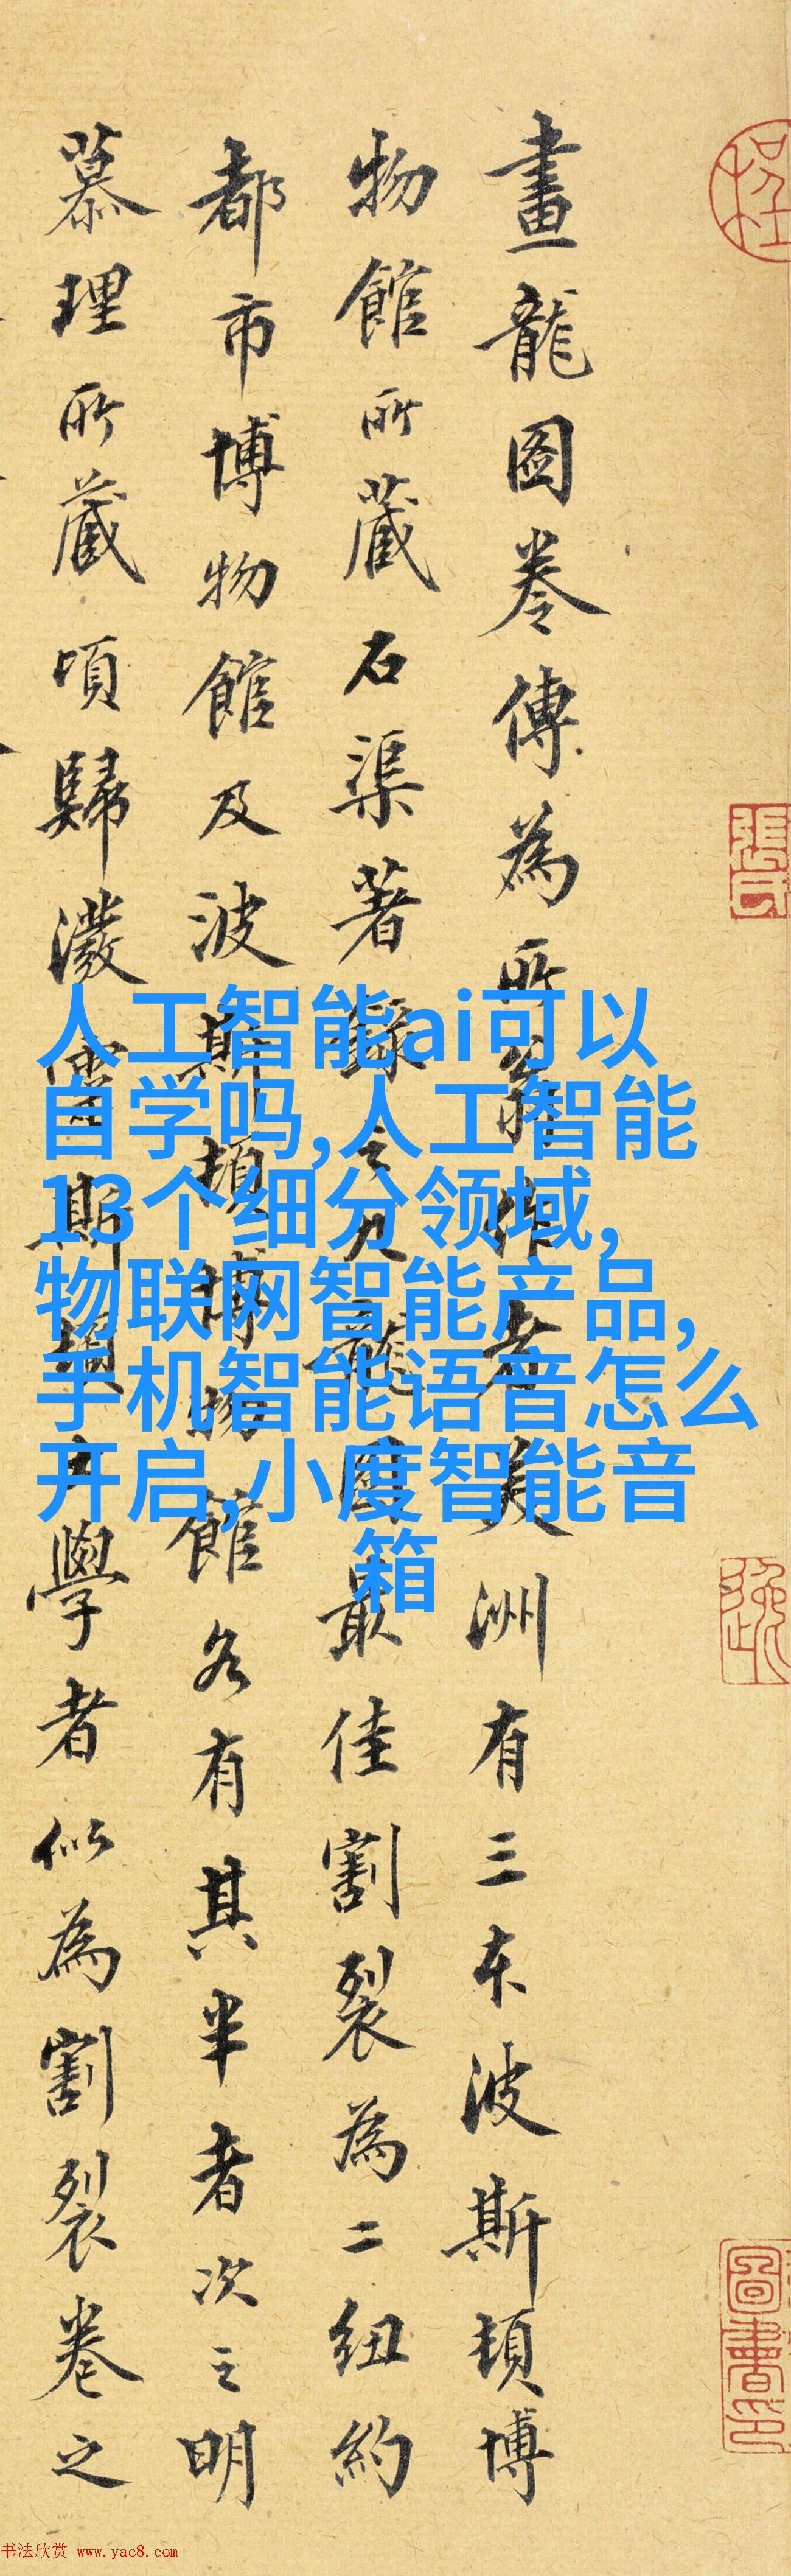 畫龍圖卷傳為所翁作者美洲有三本波斯頓博
物館所藏石渠著錄之九龍圖最佳割裂為二紐約
都市博物館及波斯頓博物館各有其半者次之明
慕理所藏頃歸瀲雲斯頓大學者似為割裂卷之
人工智能ai可以
自学吗,人工智能
13个细分领域,
物联网智能产品,
手机智能语音怎么
开启,小度智能音
箱
張氏
圖書印
书法欣赏 www.yac8.com